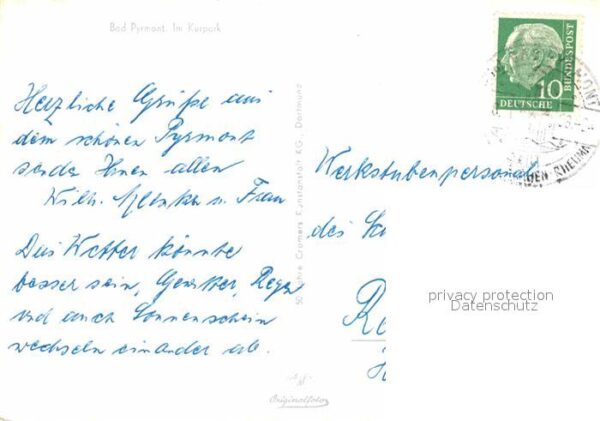 Bad Pyrmont. Im Kurpark
10
DEUTSCHE
BUNDESPOST
Herzliche Grüße aus
dem schönen Pyrmont
sendet Ihnen allen
Wilh. u. Frau
Das Wetter könnte
besser sein, Gewitter, Regen
und auch Sonnenschein
wechseln einander ab.
50 Jahre Cramers Kunstanstalt KG. Dortmund
Originalfoto
Werkstubenpersonal
des
privacy protection
Datenschutz